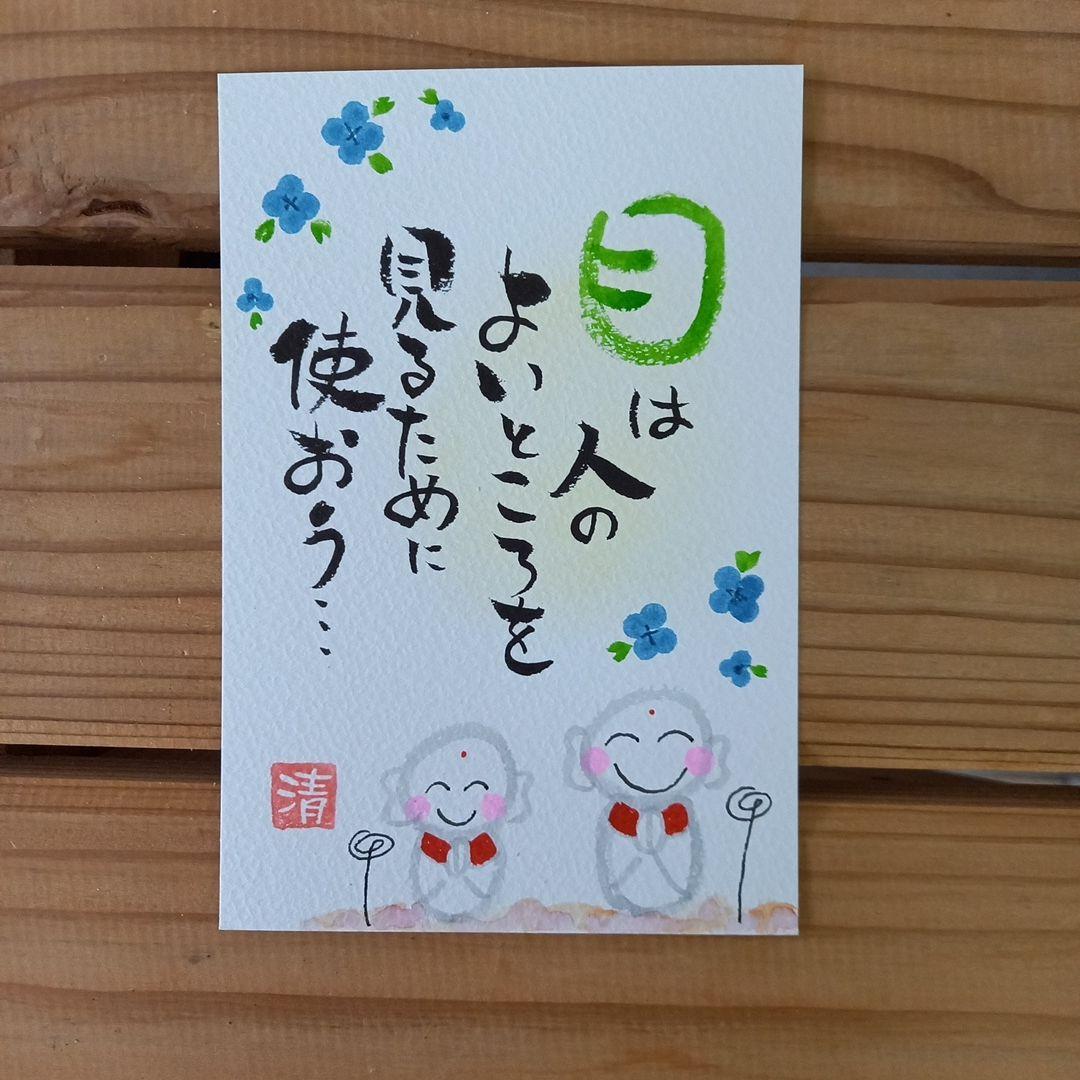 目は
人の
よいところを
見るために
使おう…
清